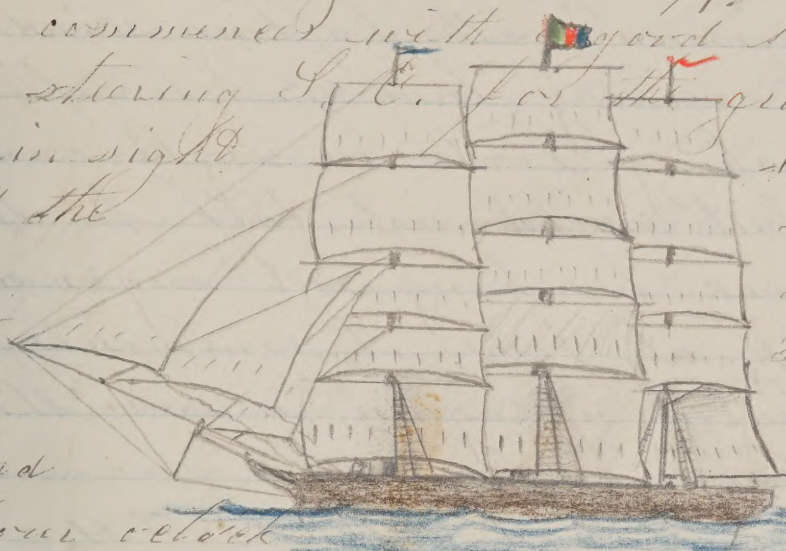 commences with a good
steering S. E. for the
in sight
the
our oclock